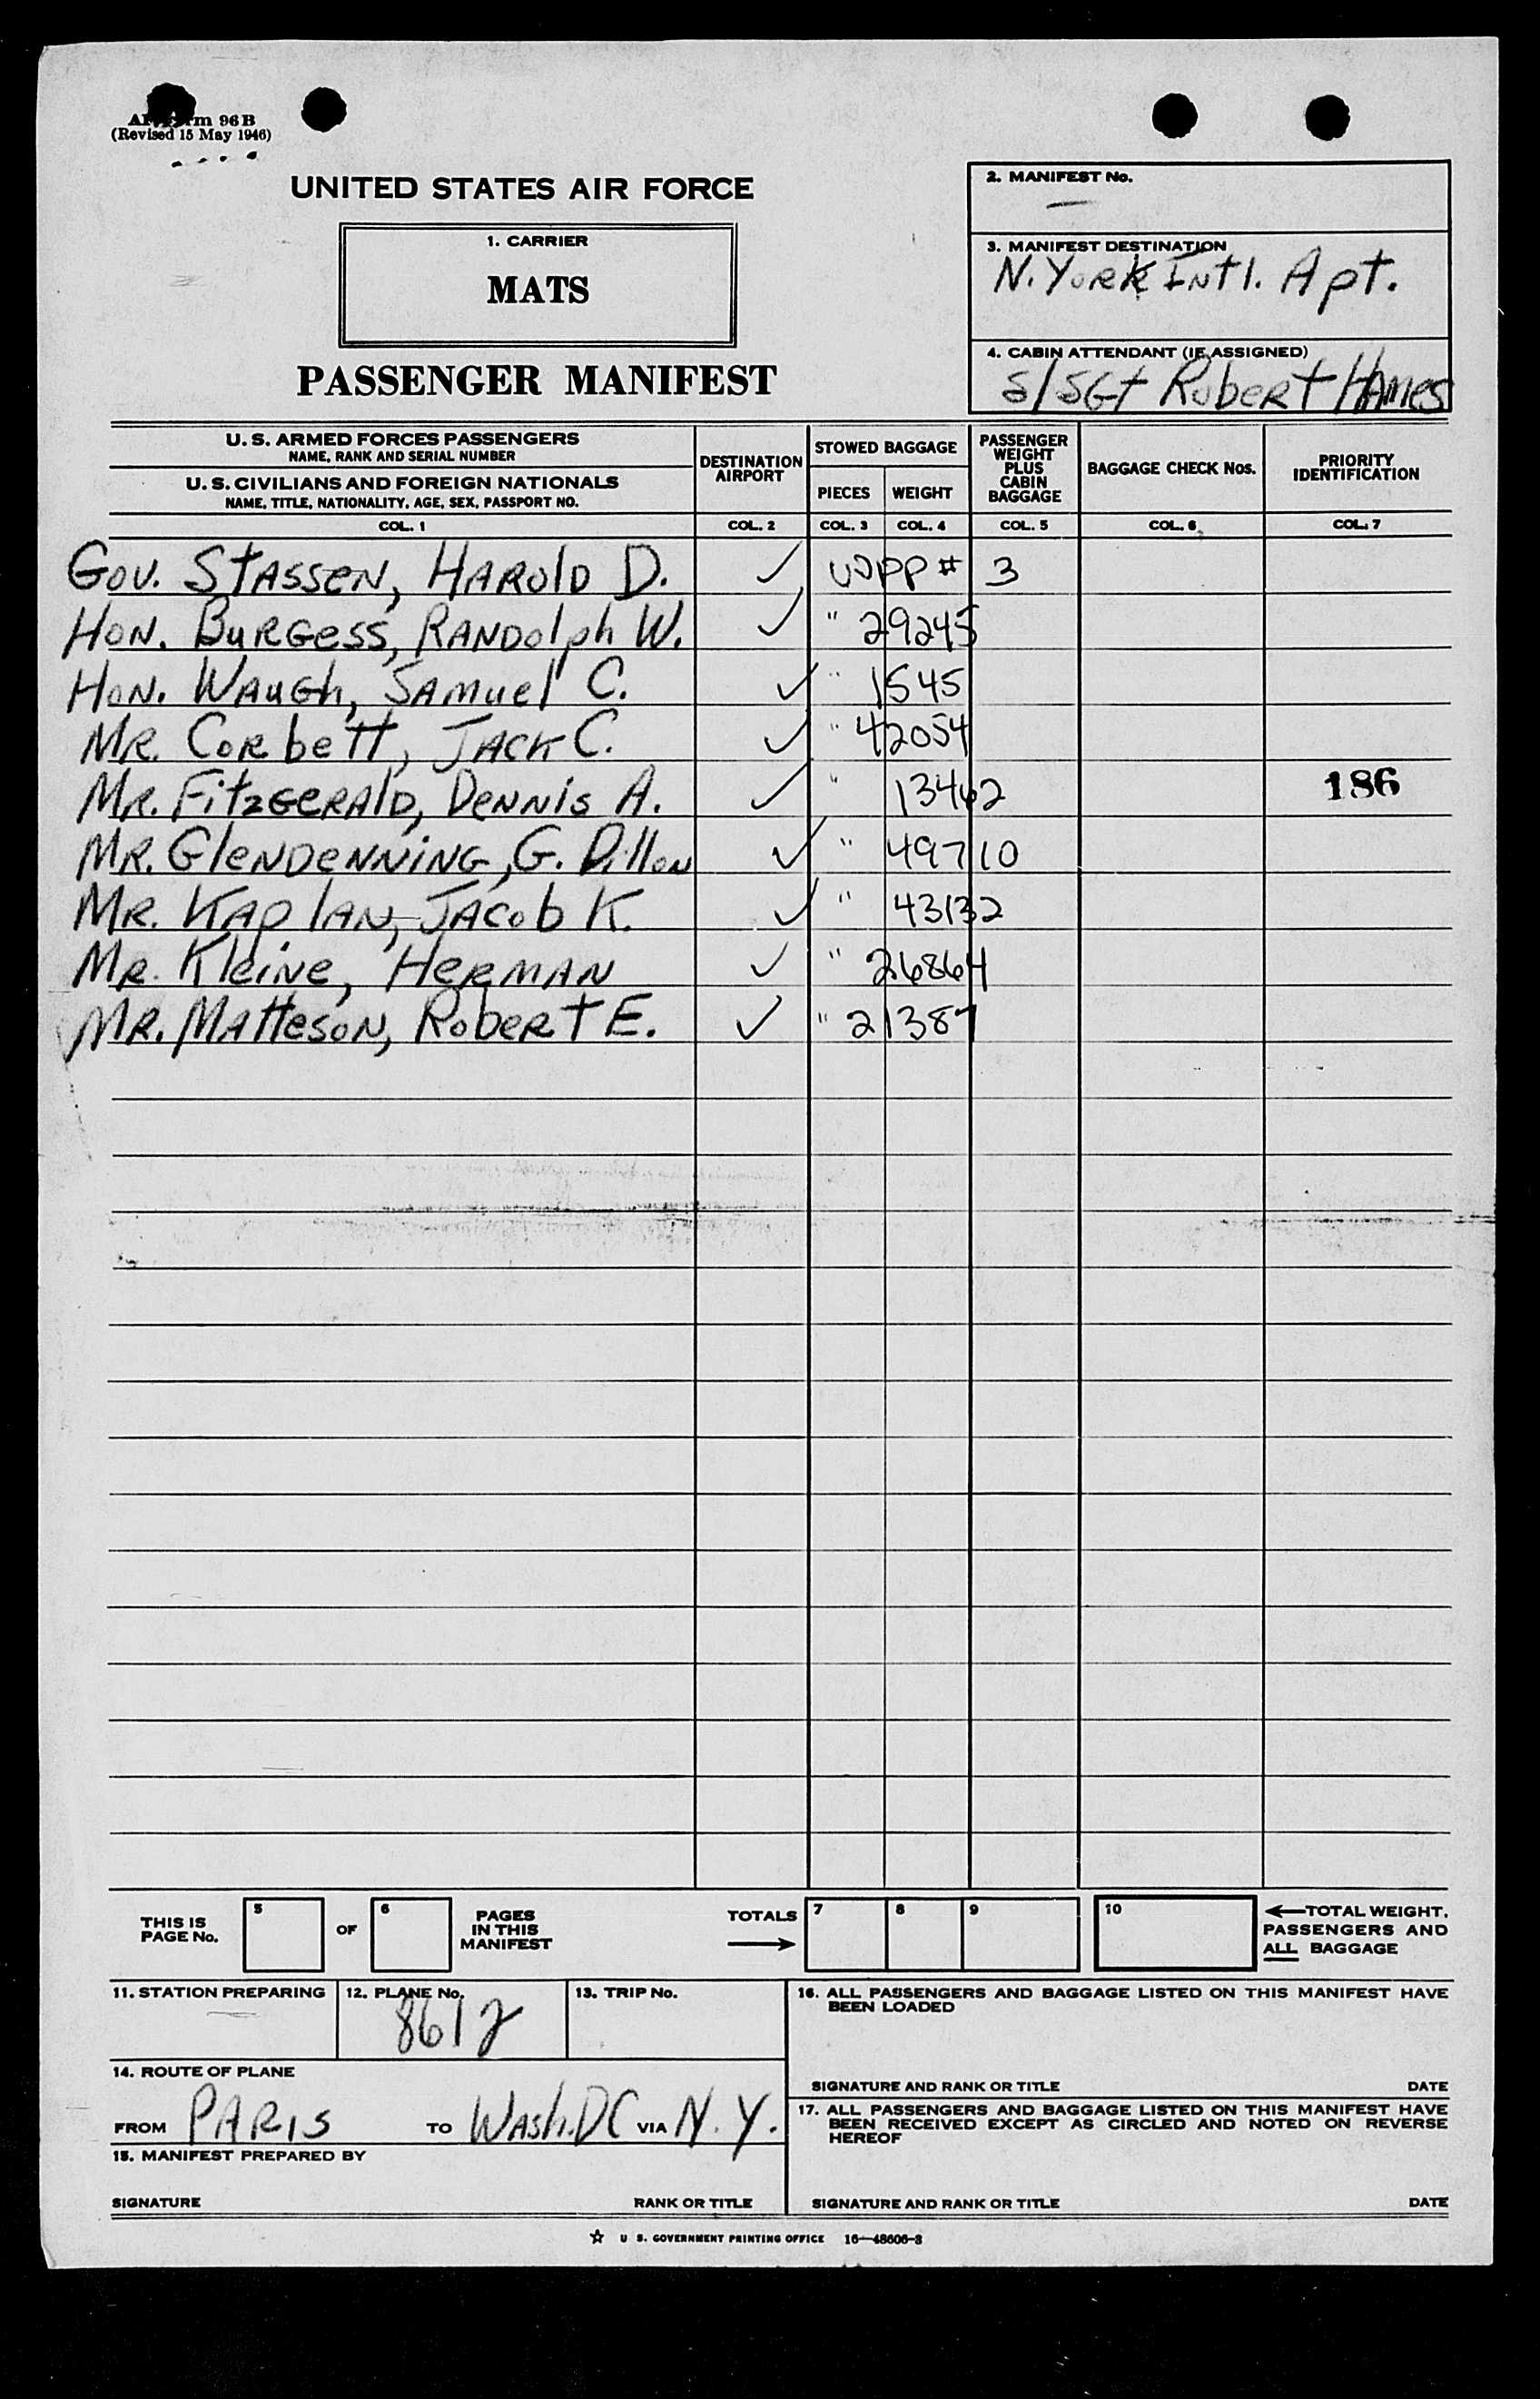 Form 96 B
(Revised 15 May 1946)
UNITED STATES AIR FORCE
1. CARRIER
MATS
PASSENGER MANIFEST
2. MANIFEST No.
—
3. MANIFEST DESTINATION
N. York Intl. Apt.
4. CABIN ATTENDANT (IF ASSIGNED)
S/SGt Robert Hames
U. S. ARMED FORCES PASSENGERS
NAME, RANK AND SERIAL NUMBER
U. S. CIVILIANS AND FOREIGN NATIONALS
NAME, TITLE, NATIONALITY, AGE, SEX, PASSPORT NO.
COL. 1
DESTINATION AIRPORT
COL. 2
STOWED BAGGAGE
PIECES
COL. 3
WEIGHT
COL. 4
PASSENGER WEIGHT PLUS CABIN BAGGAGE
COL. 5
BAGGAGE CHECK Nos.
COL. 6
PRIORITY IDENTIFICATION
COL. 7
Gov. Stassen, Harold D. ✓ USPP # 3
Hon. Burgess, Randolph W. ✓ " 29245
Hon. Waugh, Samuel C. ✓ " 1545
Mr. Corbett, Jack C. ✓ " 42054
Mr. Fitzgerald, Dennis A. ✓ " 13462 186
Mr. Glendenning, G. Dillon ✓ " 49710
Mr. Kaplan, Jacob K. ✓ " 43132
Mr. Kleine, Herman ✓ " 26864
Mr. Matteson, Robert E. ✓ " 21387
THIS IS PAGE No.
5
OF
6
PAGES IN THIS MANIFEST
TOTALS →
7
8
9
10
← TOTAL WEIGHT, PASSENGERS AND ALL BAGGAGE
11. STATION PREPARING
—
12. PLANE No.
8612
13. TRIP No.
14. ROUTE OF PLANE
FROM Paris TO Wash. DC VIA N.Y.
15. MANIFEST PREPARED BY
SIGNATURE RANK OR TITLE
16. ALL PASSENGERS AND BAGGAGE LISTED ON THIS MANIFEST HAVE
BEEN LOADED
SIGNATURE AND RANK OR TITLE DATE
17. ALL PASSENGERS AND BAGGAGE LISTED ON THIS MANIFEST HAVE
BEEN RECEIVED EXCEPT AS CIRCLED AND NOTED ON REVERSE
HEREOF
SIGNATURE AND RANK OR TITLE DATE
☆ U S. GOVERNMENT PRINTING OFFICE 16—48606-3